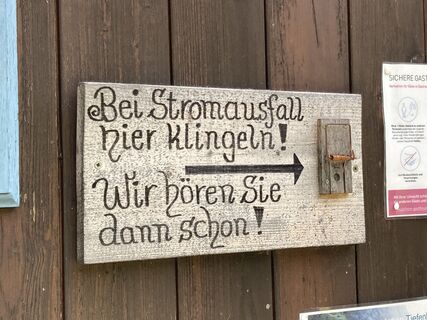 Bei Stromausfall
hier Klingeln!
Wir hören Sie
dann schon!
SICHERE GAST
Tiefen